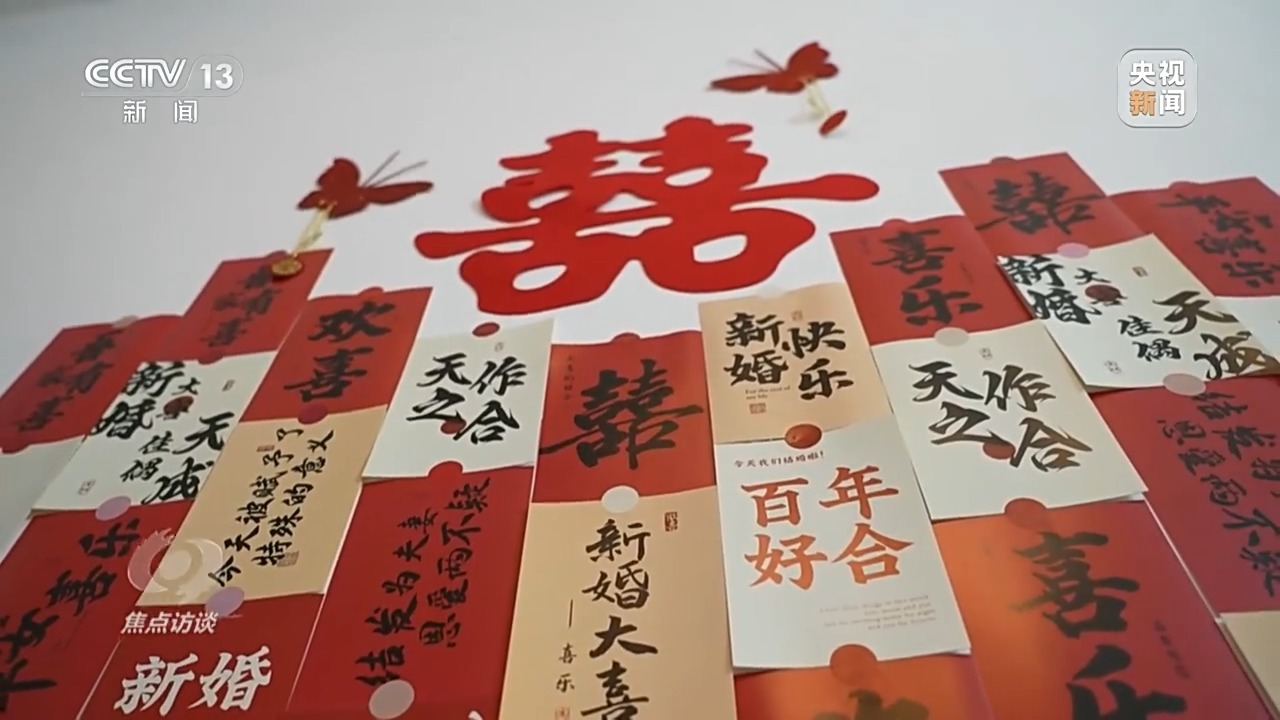 CCTV 13
新闻
央视
新闻
囍
囍
喜乐
欢喜
新婚
大喜
佳偶
天成
天作
之合
囍
新婚
快乐
天作
之合
新婚
大喜
佳偶
天成
今天被赋予了
特殊的意义
结发为夫妻
恩爱两不疑
今天我们结婚啦!
百年
好合
新婚大喜
喜乐
喜乐
平安喜乐
焦点访谈
新婚